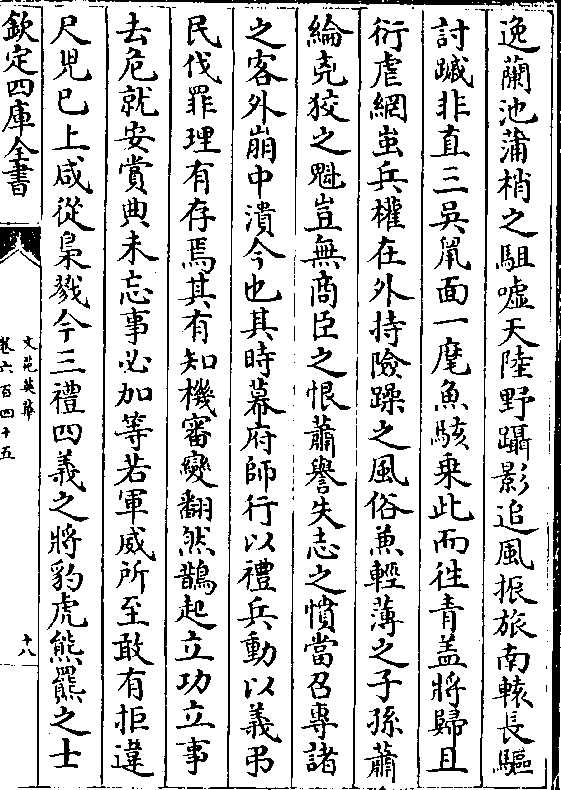 逸蘭池蒲梢之駔嘘天陸野躡影追風振旅南轅長驅
討蹠非直三吳鼠面一麾魚駭乗此而徃青盖將歸且
衍虐網蚩兵權在外持險躁之風俗兼輕薄之子孫蕭
綸兇狡之魁豈無商臣之恨蕭譽失志之憤當召專諸
之客外崩中潰今也其時幕府師行以禮兵動以義弔
民伐罪理有存焉其有知機審變翻然鵲起立功立事
去危就安賞典未忘事必加等若軍威所至敢有拒違
尺兒已上咸從梟戮今三禮四義之將豹虎熊羆之士
欽定四庫全書
文苑英華
卷六百四十五
十八